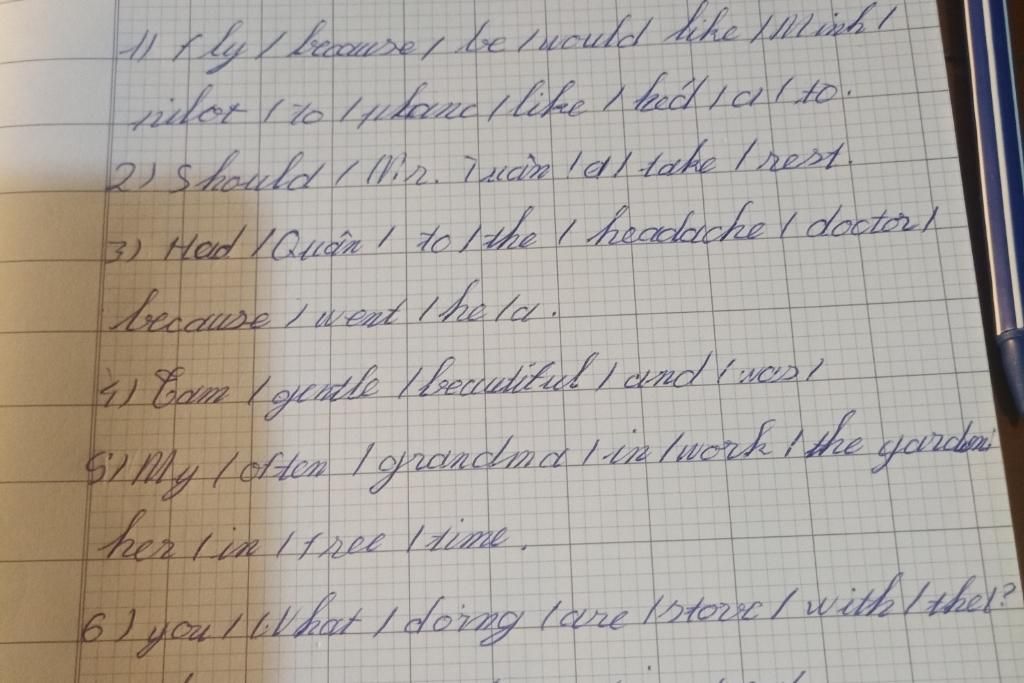 1) fly / because / be / would like / Minh /
pilot / to / plane / like / he'd / a / to.
2) Should / Mr. Tuấn / a / take / rest.
3) Had / Quân / to / the / headache / doctor /
because / went / he / a.
4) Tam / gentle / beautiful / and / was /
5) My / often / grandma / in / work / the garden
her / in / free / time.
6) you / What / doing / are / stove / with / the / ?